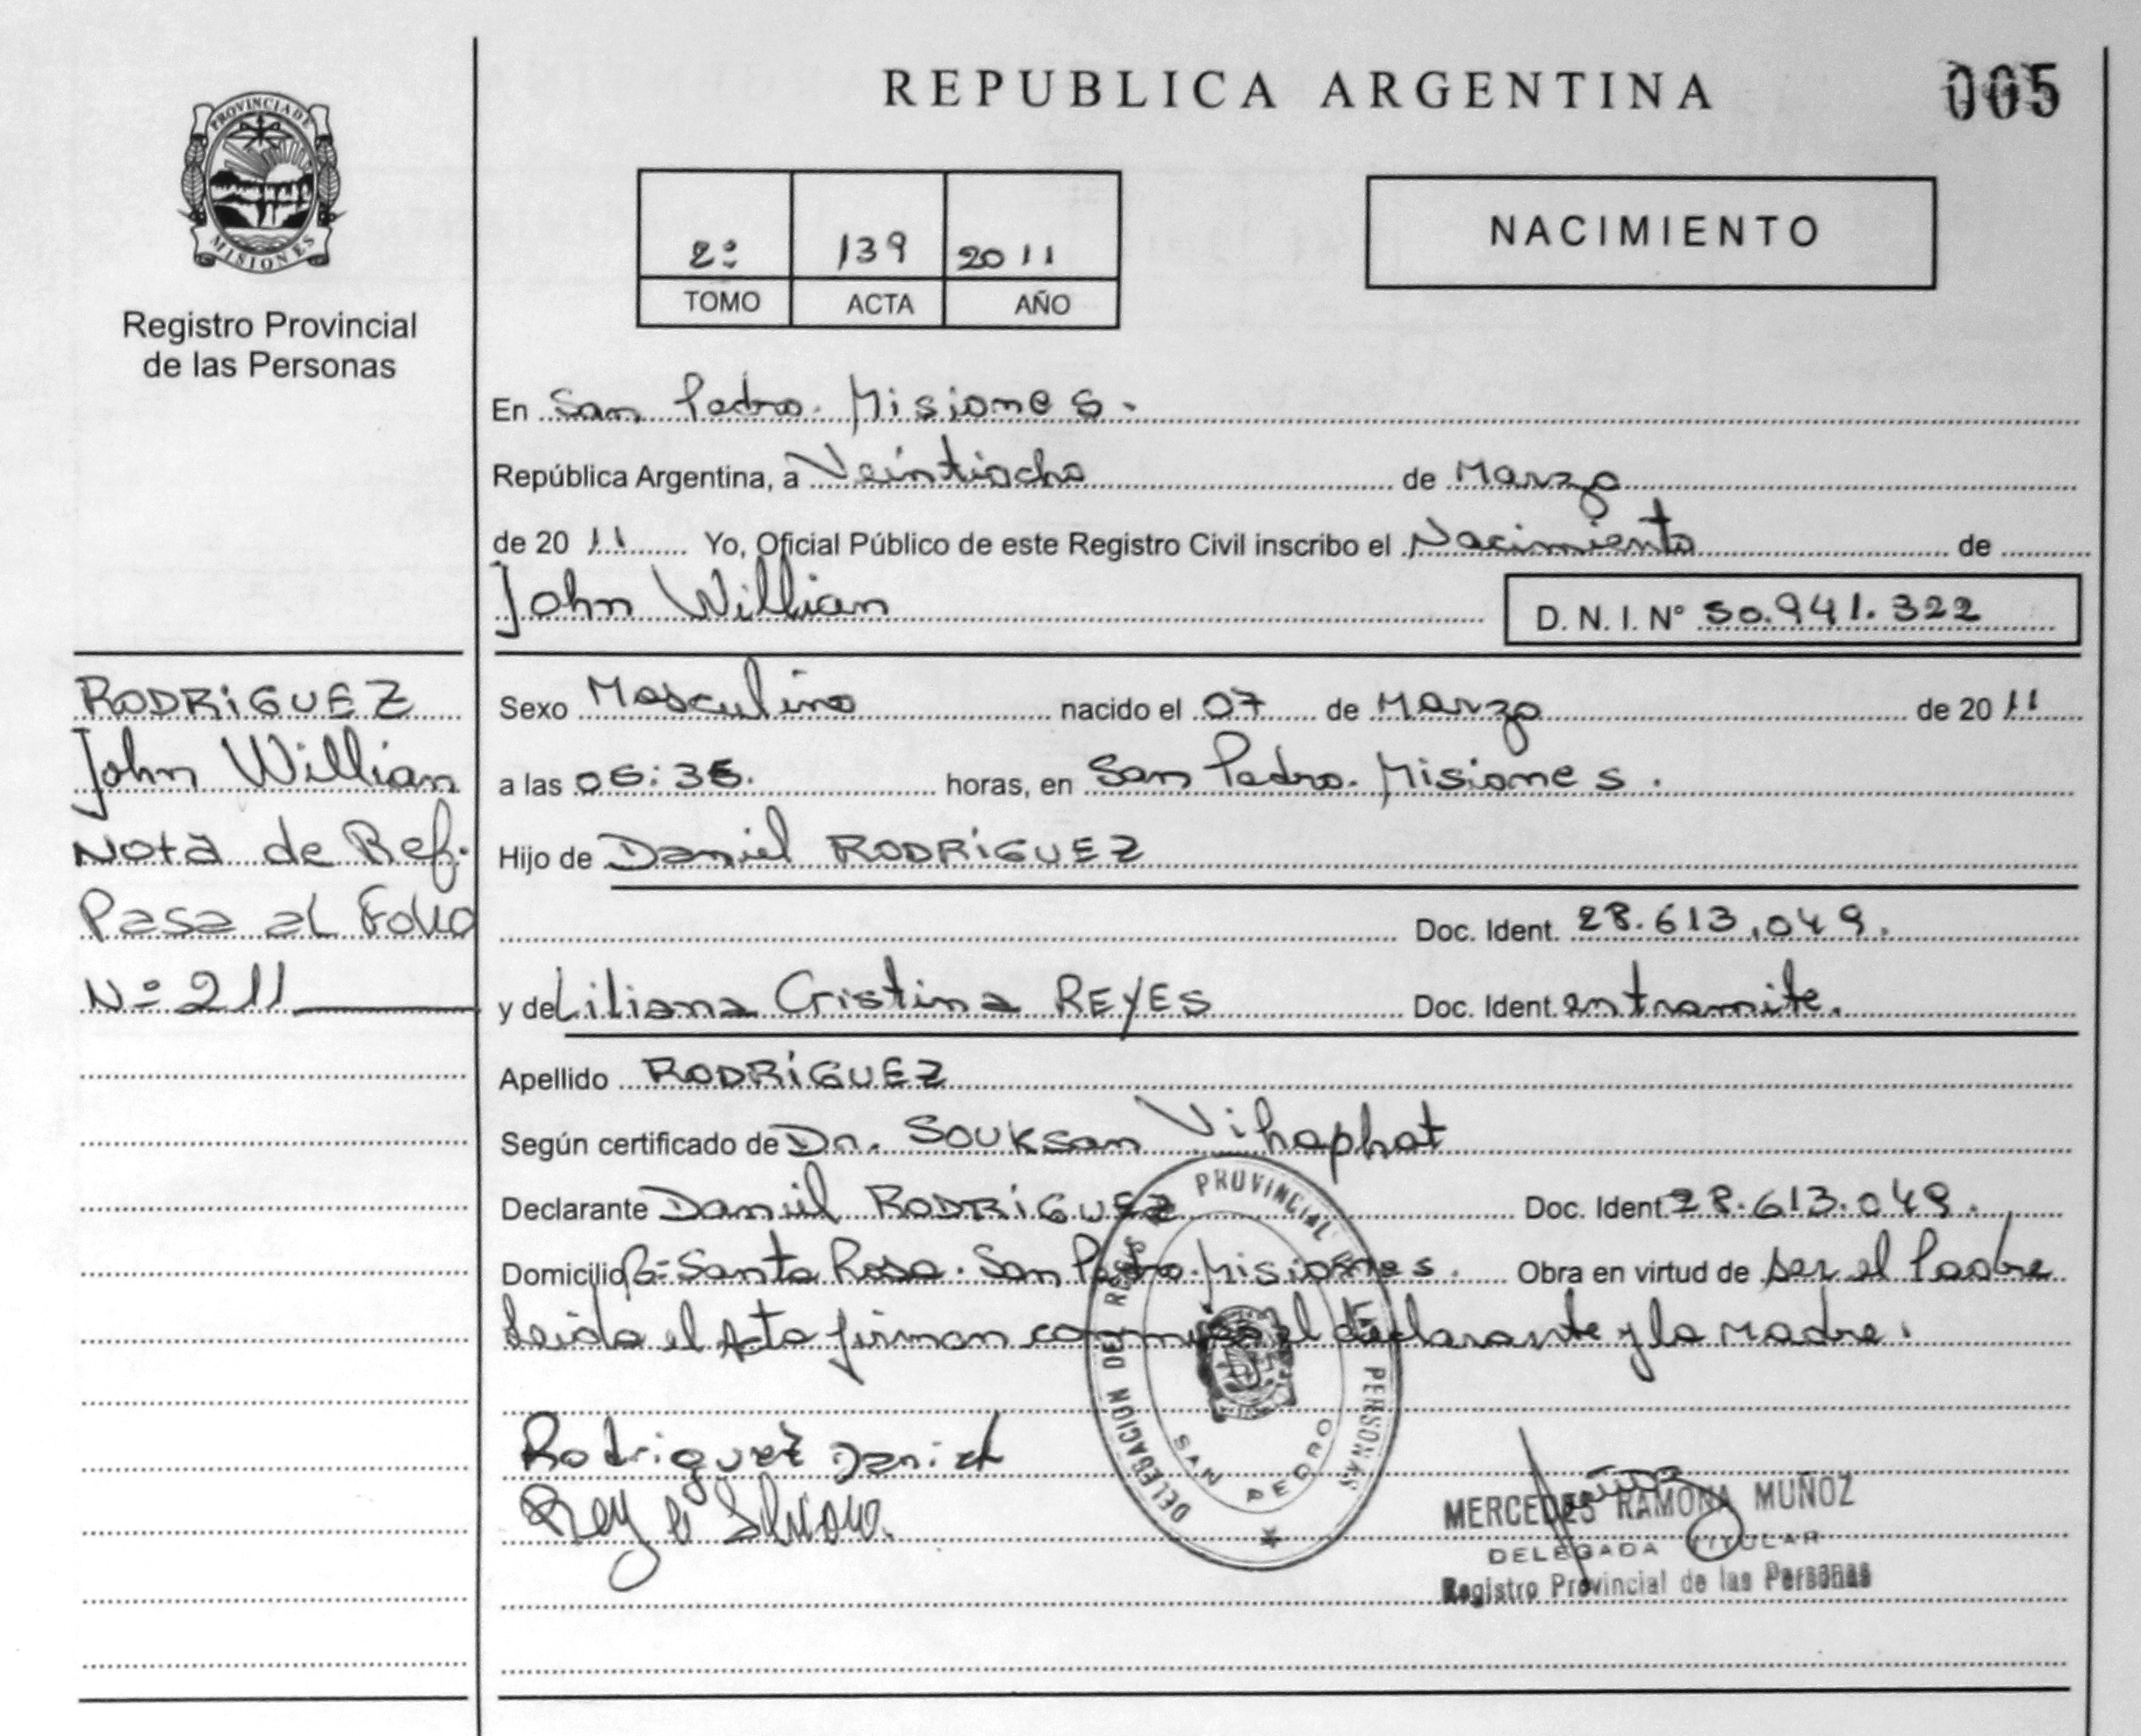 REPUBLICA ARGENTINA
005
PROVINCIA DE
MISIONES
Registro Provincial
de las Personas
2º 139 2011
TOMO ACTA AÑO
NACIMIENTO
En San Pedro. Misiones.
República Argentina, a Veintiocho de Marzo
de 20 11 Yo, Oficial Público de este Registro Civil inscribo el Nacimiento de
John Willian
D. N. I. Nº 50.941.322
RODRÍGUEZ
John Willian
Nota de Ref.
Pasa al Folio
Nº 211
Sexo Masculino nacido el 07 de Marzo de 20 11
a las horas, en San Pedro. Misiones.
Hijo de Daniel RODRÍGUEZ
Doc. Ident. 28.613.049.
y de Liliana Cristina REYES Doc. Ident. en tramite.
Apellido RODRÍGUEZ
Según certificado de Dr. Souksan Vihaphat
Declarante Daniel RODRÍGUEZ Doc. Ident. 28.613.049.
Domicilio Bº Santa Rosa. San Pedro. Misiones. Obra en virtud de ser el Padre
Leida el Acta firman conmigo el declarante y la madre.
DELEGACION DEL PROVINCIAL PERSONAS
SAN PEDRO
Rodriguez Daniel
MERCEDES RAMONA MUÑOZ
DELEGADA TITULAR
Registro Provincial de las Personas